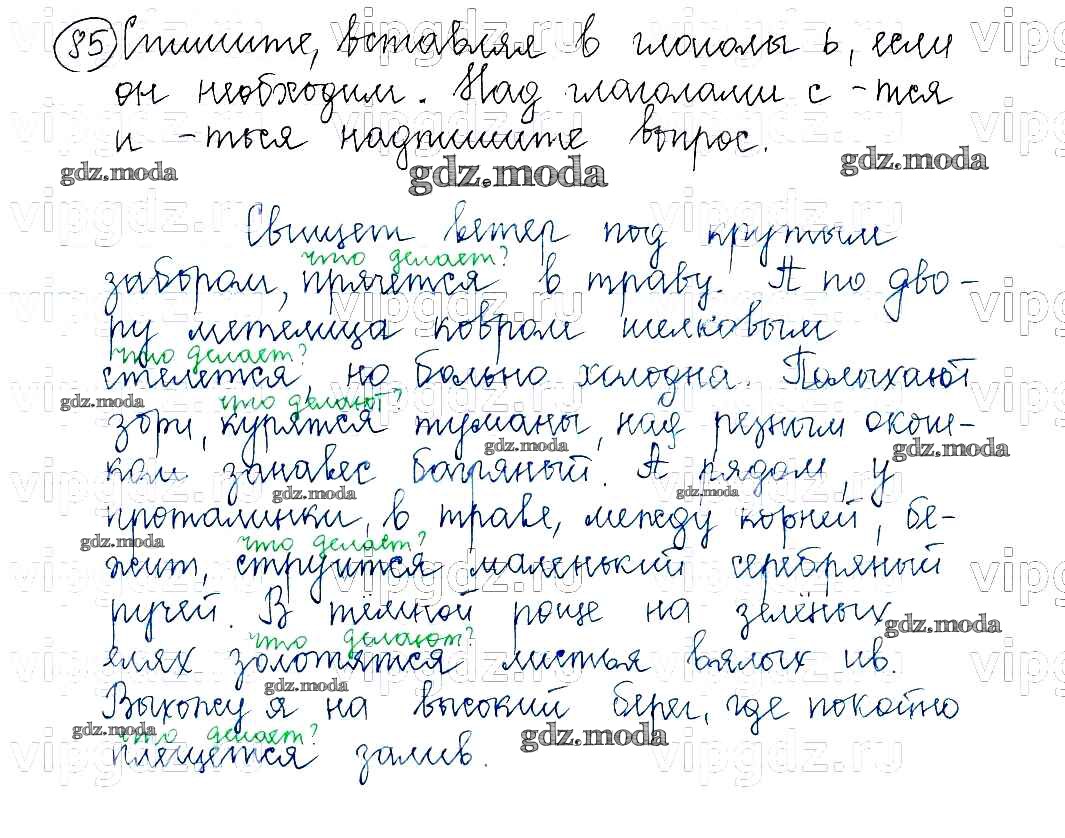 85 Спишите, вставляя в глаголы ь, если
он необходим. Над глаголами с -тся
и -ться надпишите вопрос.
gdz.moda gdz.moda gdz.moda
Свищет ветер под крутым
что делает?
забором, прячется в траву. А по дво-
ру метелица ковром шелковым
что делает?
стелется, но больно холодна. Полыхают
gdz.moda что делают?
зори, курятся туманы, над резным окош-
gdz.moda gdz.moda
ком занавес багряный. А рядом, у
gdz.moda gdz.moda
проталинки, в траве, между корней, бе-
gdz.moda что делает?
жит, струится маленький серебряный
ручей. В тёмной роще на зелёных
что делают? gdz.moda
елях золотятся листья вялых ив.
gdz.moda
Выхожу я на высокий берег, где покойно
gdz.moda что делает? gdz.moda
плещется залив.
vipgdz.ru